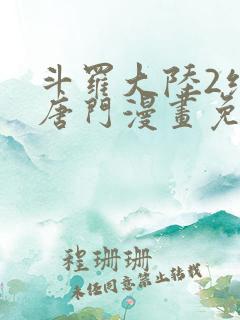 斗羅大陸2
唐門漫畫免
程珊珊
未任同意禁止转载